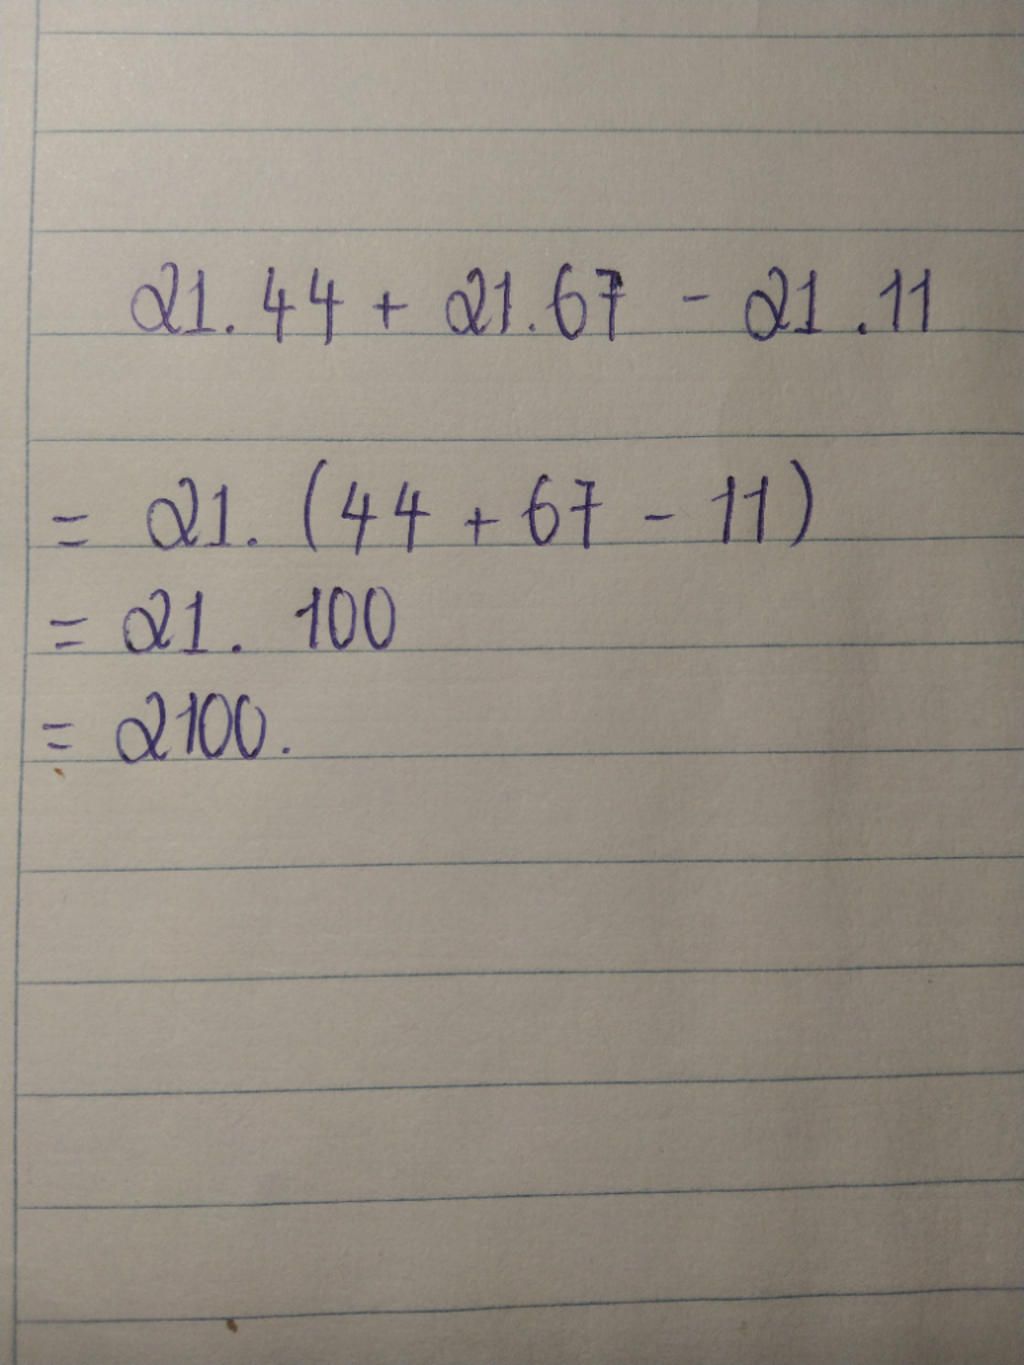 21.44 + 21.67 - 21.11
= 21. (44 + 67 - 11)
= 21. 100
= 2100.